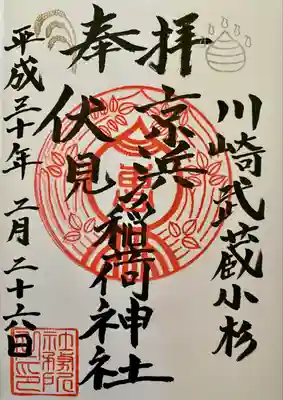 川崎武蔵小杉
奉拝
京浜
伏見稲荷神社
平成三十年二月二十六日
社務所